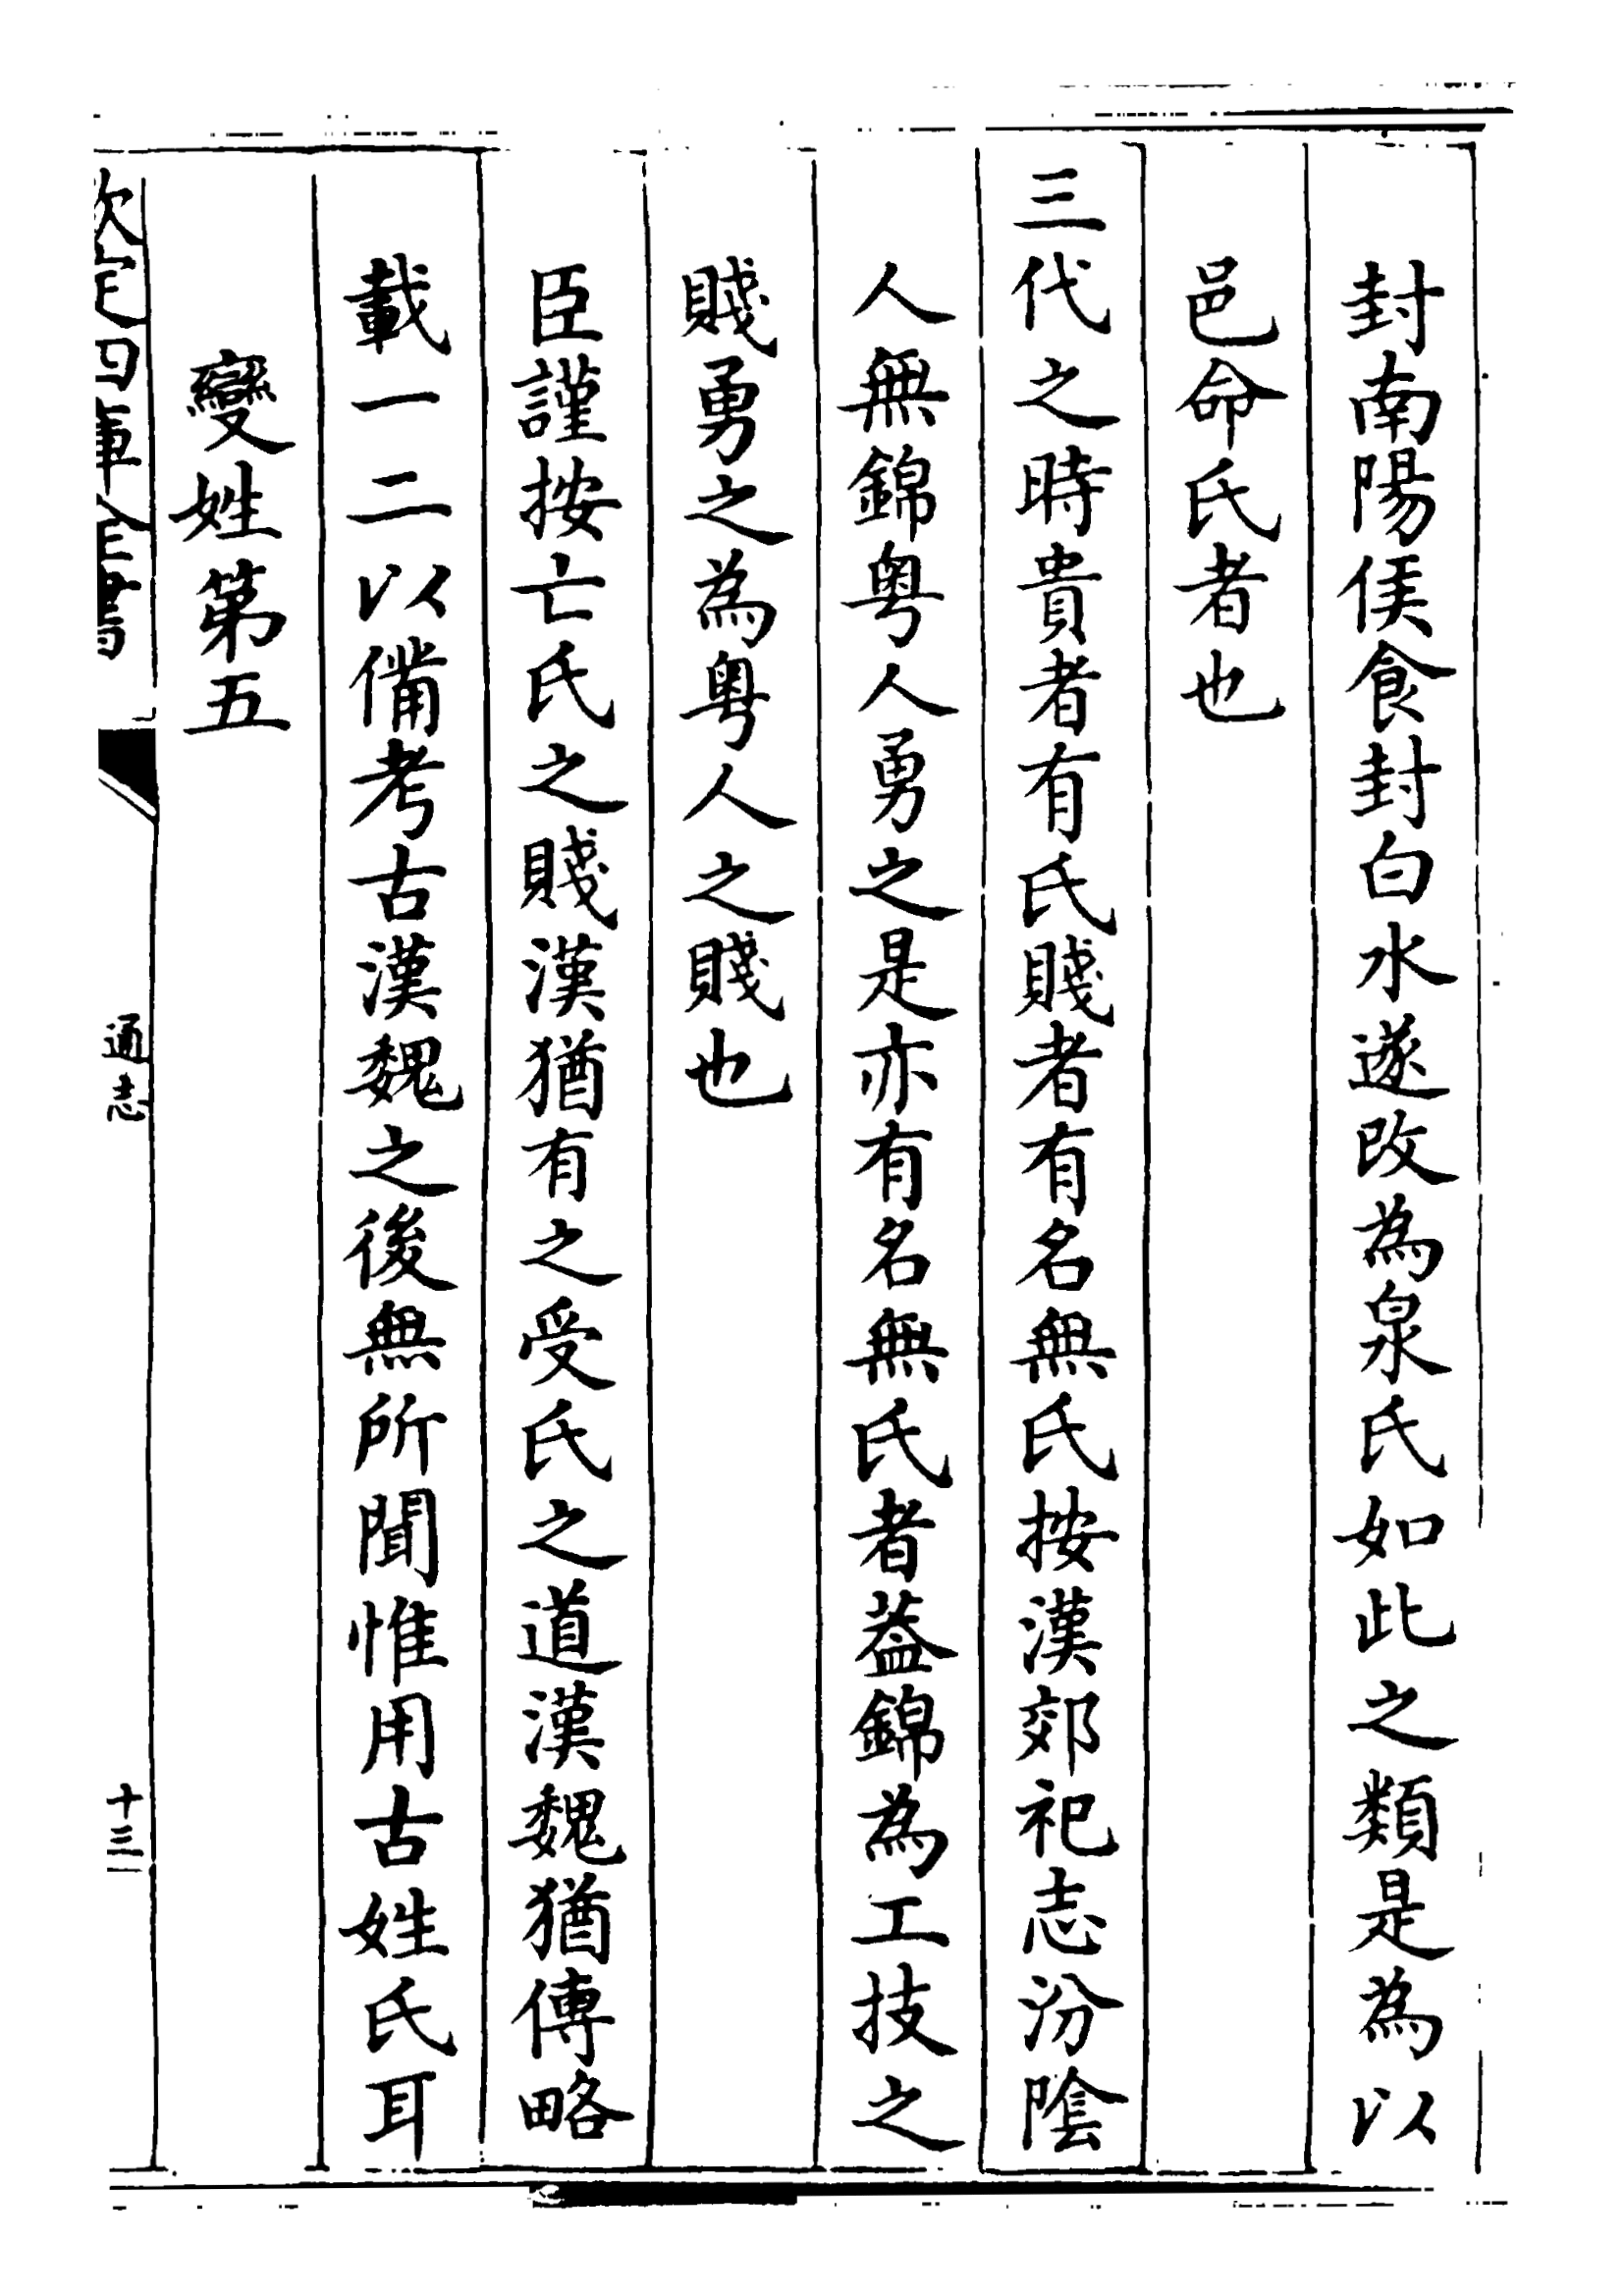 封南陽侯食封白水遂改為泉氏如此之類是為以
邑命氏者也
三代之時貴者有氏賤者有名無氏按漢郊祀志汾隂
人無錦粤人勇之是亦有名無氏者葢錦為工技之
賤勇之為粤人之賤也
臣謹按亡氏之賤漢猶有之受氏之道漢魏猶傳略
載一二以備考古漢魏之後無所聞惟用古姓氏耳
變姓第五
欽定四庫全書
通志
十三